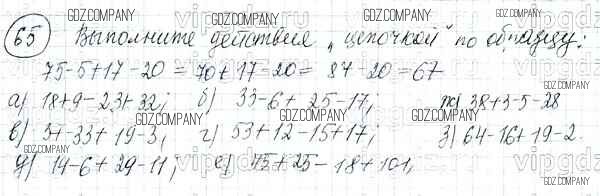 GDZ.COMPANY GDZ.COMPANY GDZ.COMPANY
65 Выполните действия "цепочкой" по образцу:
75-5+17-20=70+17-20=87-20=67
GDZ.COMPANY GDZ.COMPANY GDZ.COMPANY
а) 18+9-23+32; б) 33-6+25-17; ж) 38+3-5-28
GDZ.COMPANY GDZ.COMPANY
в) 5+-33+19-3; г) 53+12-15+17; з) 64-16+19-2
GDZ.COMPANY GDZ.COMPANY GDZ.COMPANY
д) 14-6+29-11; е) 75+25-18+101,